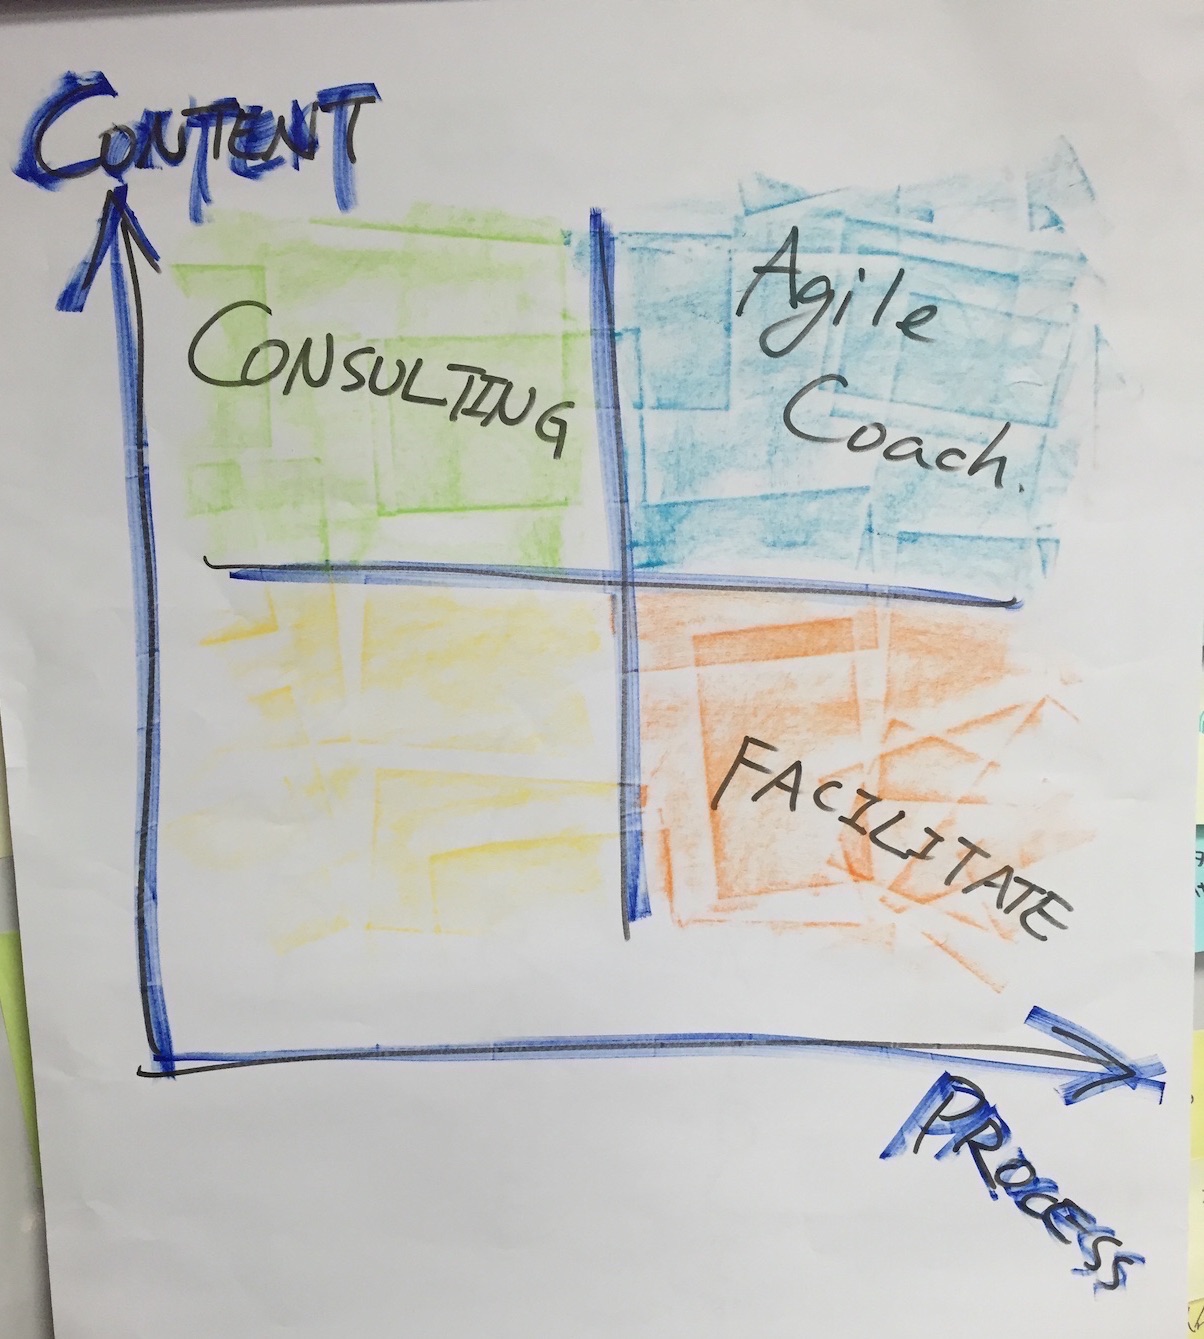 CONTENT
CONSULTING
Agile
Coach.
FACILITATE
PROCESS